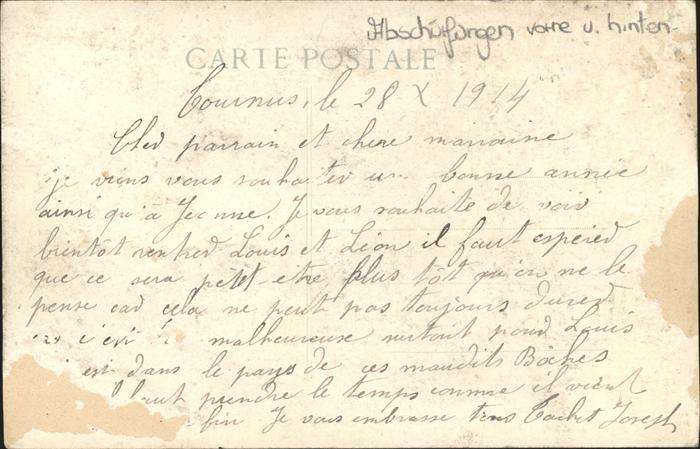 Abschürfungen vorne u. hinten
CARTE POSTALE
Tournus, le 28 X 1914
Cher parrain et chere marraine
je viens vous souhaiter un bonne année
ainsi qu'à Jeanne. Je vous souhaite de voir
bientot rentrer Louis et Léon il faut esperer
que ce sera petet-etre plus tôt qu'on ne le
pense car cela ne peut pas toujours durer
malheureuse surtout pour Louis
est dans le pays de ces maudits Bôches
prendre le temps comme il vient
fin Je vous embrasse tous Joseph